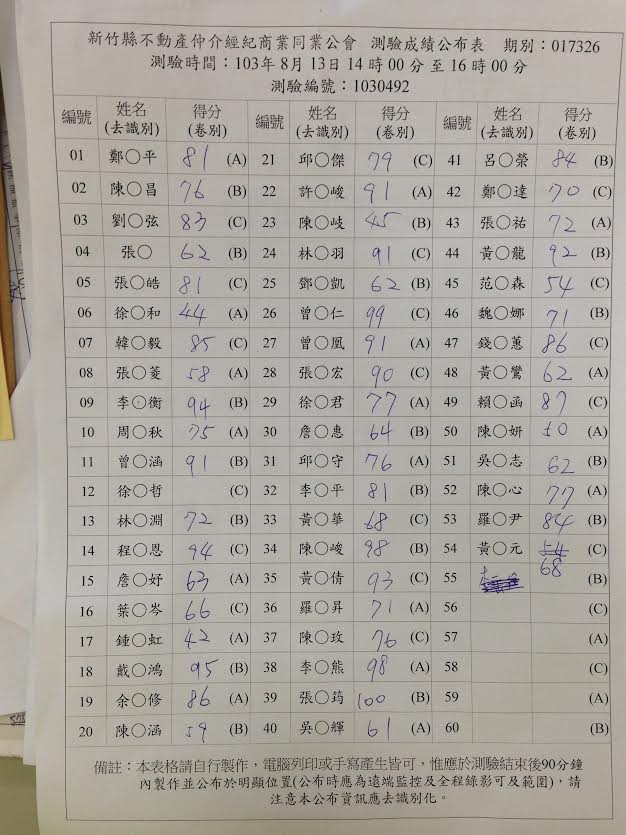 新竹縣不動產仲介經紀商業同業公會 測驗成績公布表 期別:017326
測驗時間:103年8月13日14時00分至16時00分
測驗編號:1030492
編號 姓名(去識別) 得分(卷別) 編號 姓名(去識別) 得分(卷別) 編號 姓名(去識別) 得分(卷別)
01 鄭○平 81 (A) 21 邱○傑 79 (C) 41 呂○榮 84 (B)
02 陳○昌 76 (B) 22 許○峻 91 (A) 42 鄭○達 70 (C)
03 劉○弦 83 (C) 23 陳○岐 45 (B) 43 張○祐 72 (A)
04 張○ 62 (B) 24 林○羽 91 (C) 44 黃○龍 92 (B)
05 張○皓 81 (C) 25 鄧○凱 62 (B) 45 范○森 54 (C)
06 徐○和 44 (A) 26 曾○仁 99 (C) 46 魏○娜 71 (B)
07 韓○毅 85 (C) 27 曾○凰 91 (A) 47 錢○蕙 86 (C)
08 張○菱 58 (A) 28 張○宏 90 (C) 48 黃○鶯 62 (A)
09 李○衡 94 (B) 29 徐○君 77 (A) 49 賴○函 87 (C)
10 周○秋 75 (A) 30 詹○惠 64 (B) 50 陳○妍 50 (A)
11 曾○涵 91 (B) 31 邱○守 76 (A) 51 吳○志 62 (B)
12 徐○哲 (C) 32 李○平 81 (B) 52 陳○心 77 (A)
13 林○淵 72 (B) 33 黃○華 68 (C) 53 羅○尹 84 (B)
14 程○恩 94 (C) 34 陳○峻 98 (B) 54 黃○元 54 68 (C)
15 詹○妤 63 (A) 35 黃○倩 93 (C) 55 (B)
16 葉○岑 66 (C) 36 羅○昇 71 (A) 56 (C)
17 鍾○虹 42 (A) 37 陳○玫 76 (C) 57 (A)
18 戴○鴻 95 (B) 38 李○熊 98 (A) 58 (C)
19 余○修 86 (A) 39 張○筠 100 (B) 59 (A)
20 陳○涵 59 (B) 40 吳○輝 61 (A) 60 (B)
備註:本表格請自行製作,電腦列印或手寫產生皆可,惟應於測驗結束後90分鐘
內製作並公布於明顯位置(公布時應為遠端監控及全程錄影可及範圍),請
注意本公布資訊應去識別化。